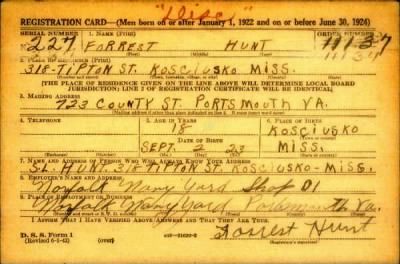 "Disc"
REGISTRATION CARD—(Men born on or after January 1, 1922 and on or before June 30, 1924)
SERIAL NUMBER 1. NAME (Print) ORDER NUMBER
N 227 FORREST HUNT 11137
11137
2. PLACE OF RESIDENCE (Print)
318-TIPTON ST. KOSCIUSKO MISS.
[THE PLACE OF RESIDENCE GIVEN ON THE LINE ABOVE WILL DETERMINE LOCAL BOARD
JURISDICTION; LINE 2 OF REGISTRATION CERTIFICATE WILL BE IDENTICAL]
3. MAILING ADDRESS
723 COUNTY ST. PORTSMOUTH VA.
[Mailing address if other than place indicated on line 2. If same insert word same]
4. TELEPHONE 5. AGE IN YEARS 6. PLACE OF BIRTH
18 KOSCIUSKO
DATE OF BIRTH
SEPT. 2 23 MISS.
7. NAME AND ADDRESS OF PERSON WHO WILL ALWAYS KNOW YOUR ADDRESS
S.L. HUNT 318 TIPTON ST. KOSCIUSKO-MISS.
8. EMPLOYER'S NAME AND ADDRESS
Norfolk Navy Yard Shop 01
9. PLACE OF EMPLOYMENT OR BUSINESS
Norfolk Navy Yard Portsmouth Va.
I AFFIRM THAT I HAVE VERIFIED ABOVE ANSWERS AND THAT THEY ARE TRUE.
D. S. S. Form 1
(Revised 6-1-42) Forrest Hunt
(Registrant's signature)